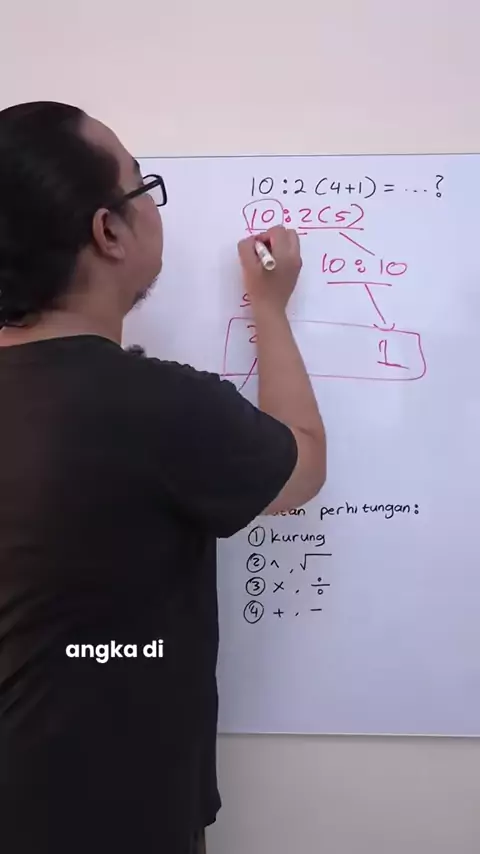 10 : 2 (4+1) = ...?
10 : 2(5)
10 : 10
1
perhitungan:
① kurung
② ^ , √
③ × , ÷
④ + , −
angka di